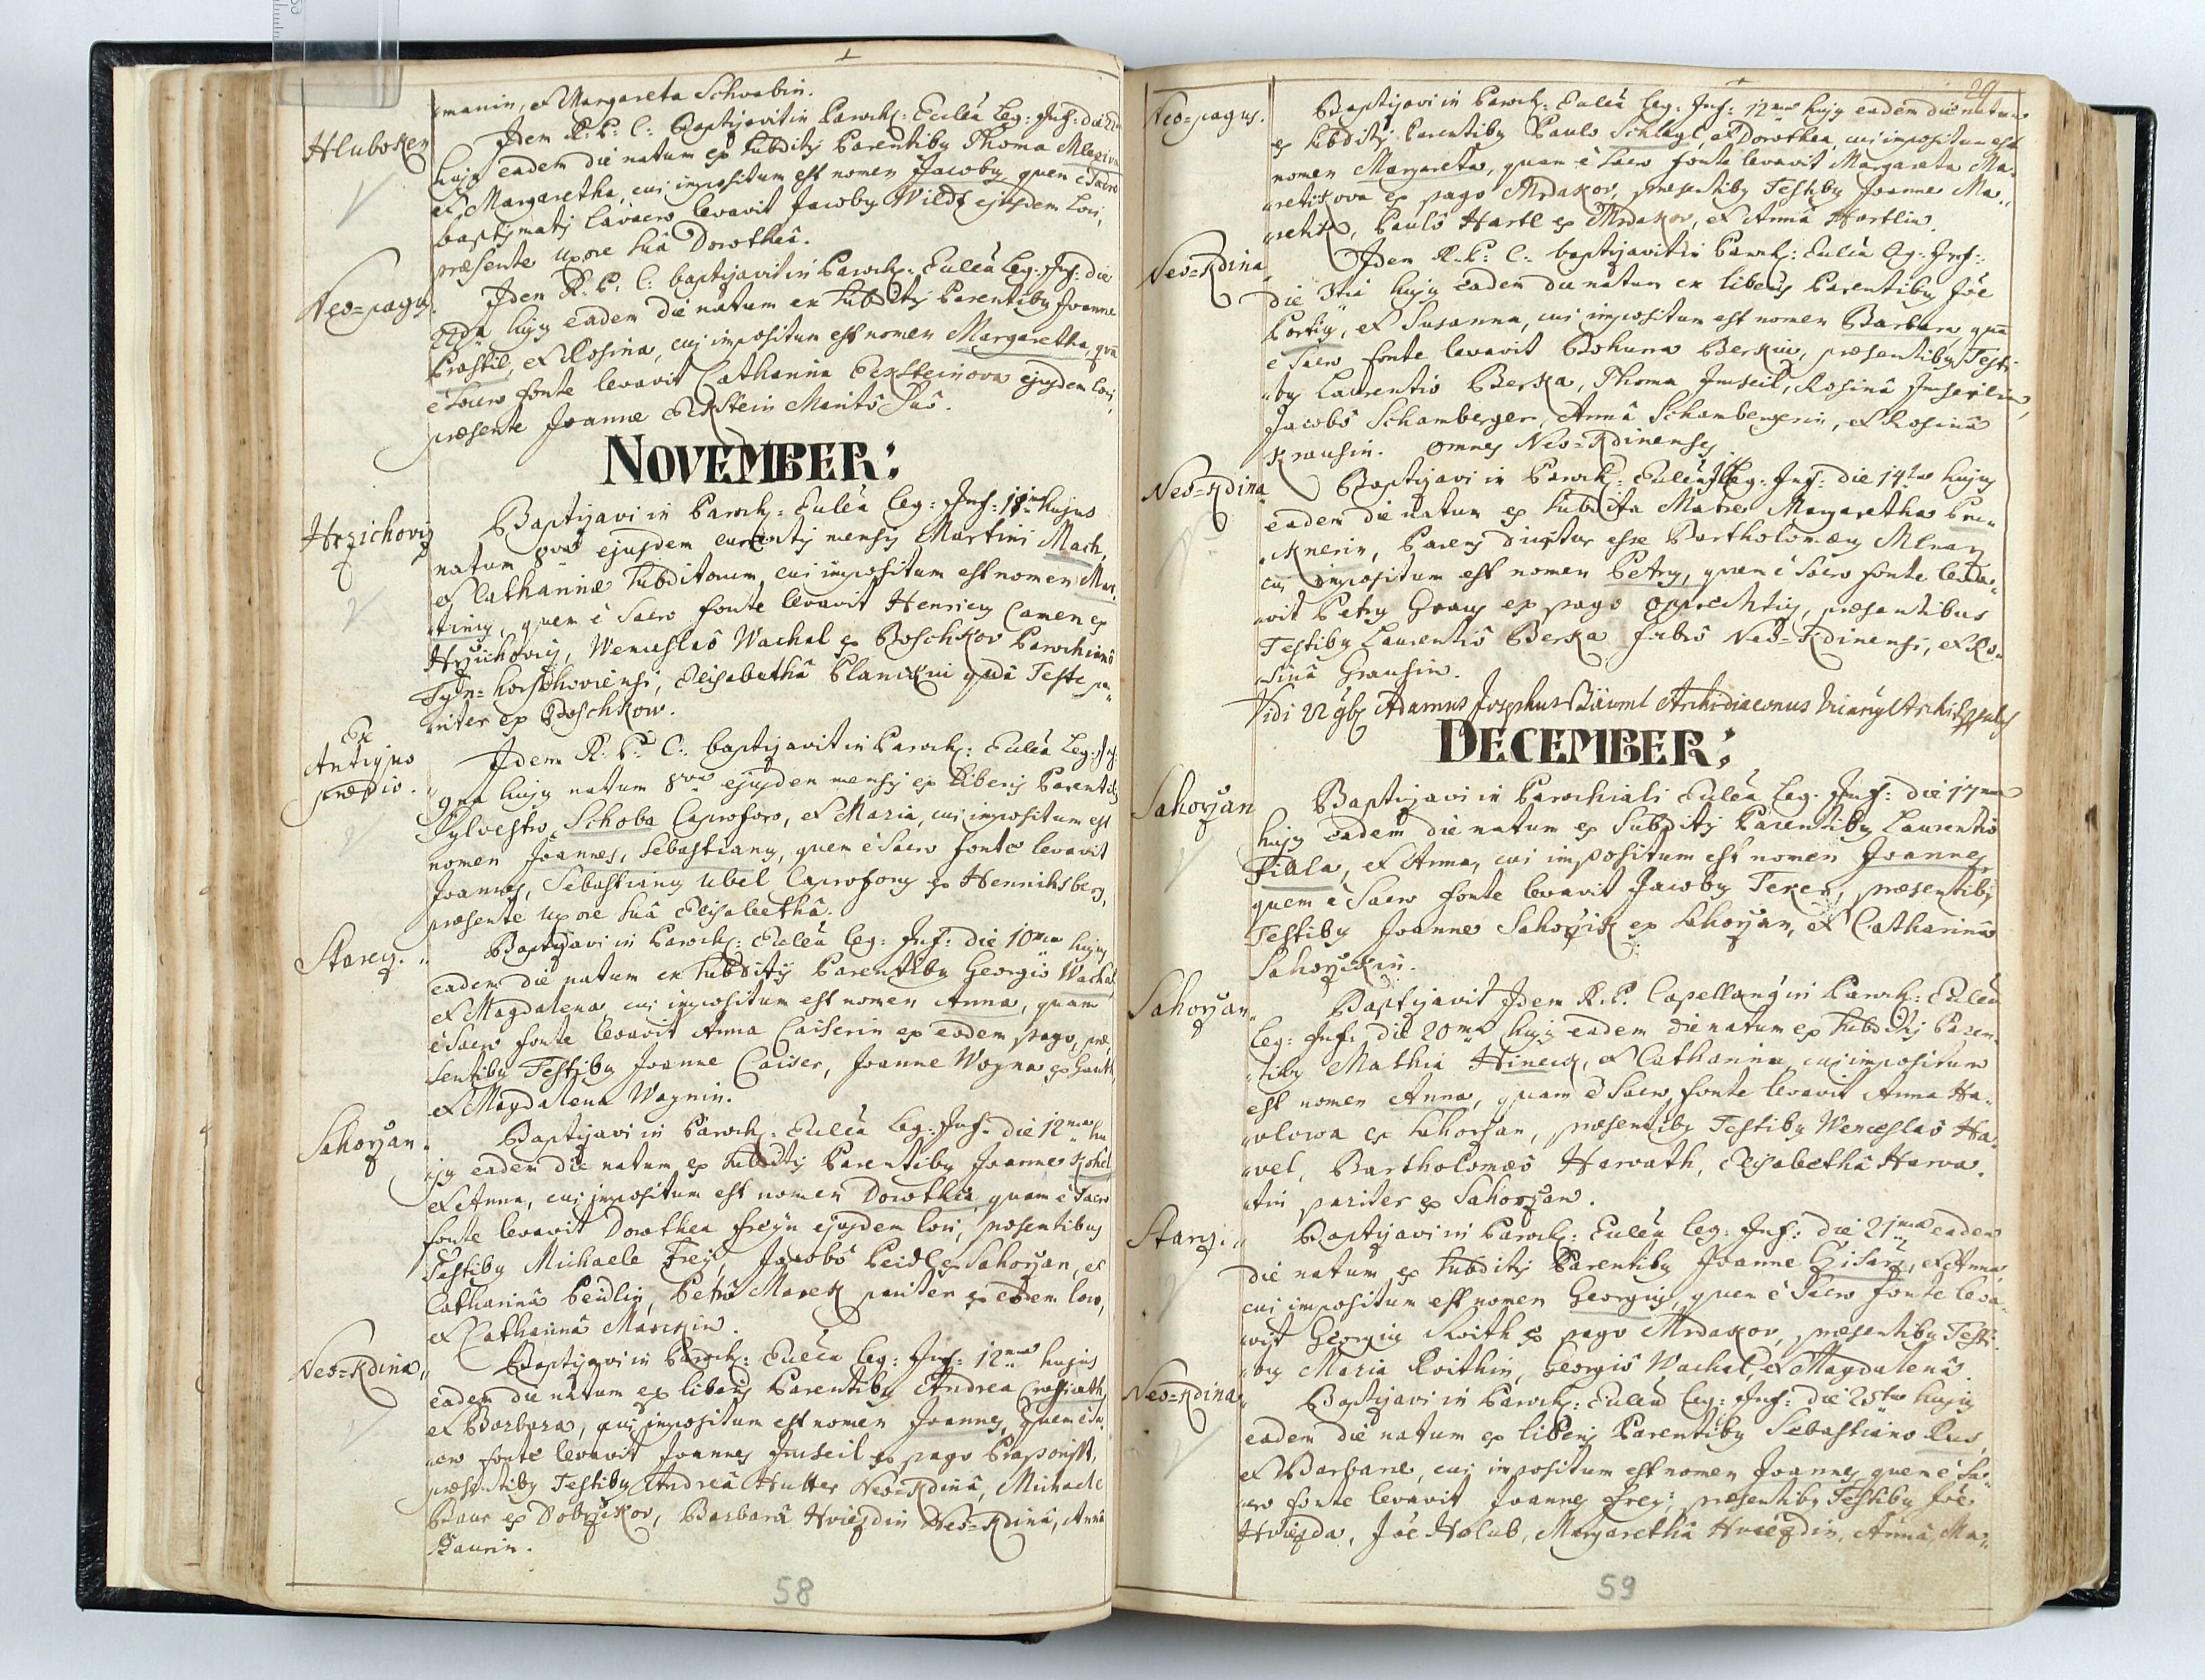 manin, et Margareta Schwabin.
Hluboken
Idem R: P: C: Baptizavit in Paroch: Ecclia Leg: Inf: die
hujq eadem die natum ex subditis Parentibq Thoma
et Margaretha, cui impositum est nomen Jacobq quem e Sacro
baptismatis lavacro levavit Jacobq Wildt ejusdem loci,
præsente uxore suâ Dorotheâ.
Neo=pagq.
Idem R. P. C: baptizavit in Paroch: Ecclia Leg: Inf: die
22da hujq eadem die natum ex subditis Parentibq Joanne
Prastil, et Rosina, cui impositum est nomen Margaretha, quã
e Sacro fonte levavit Catharina Ecksteinova ejusdem loci,
præsente Joanne Eckstein Maritô Suô.
NOVEMBER:
Hrzichoviz
Baptizavi in Paroch: Ecclia Leg: Inf: 11ma hujus
natum 8va ejusdem currentis mensis Martini Mach,
et Catharinæ subditorum, cui impositum est nomen Mar„
„tinq, quem è Sacro fonte levavit Henricq Camen ex
Hrzichoviz, Wenceslaô Wachal ex Boschkov Parochianô
Tyn=horschoviensi, Elisabethâ Planickin quâ Teste pa„
„riter ex Boschkow.
Ex
Antiquo
prædio.
Idem R. P. C: baptizavit in Paroch: Ecclia Leg: Inf:
9na hujq natum 8va ejusdem mensis ex liberis Parentibq
Sylvestro Schoba Caprofoso, et Maria, cui impositum est
nomen Joannes, Sebastianq, quem è Sacro fonte levavit
Joannes, Sebastianq Ubel Caprofosq ex Hennihsberg,
præsente uxore suâ Elisabethâ.
Starez.
Baptizavi in Paroch: Ecclia Leg: Inf: die 10ma hujq
eadem die natum ex subditis Parentibq Georgiô Wachal
et Magdalena, cui impositum est nomen Anna, quam
è Sacro fonte levavit Anna Caiserin ex eodem pago, præ„
sentibq Testibq Joanne Caiser, Joanne Wogna ex
et Magdalena Wagnin.
Sahorzan.
Baptizavi in Paroch: Ecclia Leg: Inf: die 12ma hu
„jq eadem die natum ex subditis Parentibq Joanne Kohel
et Anna, cui impositum est nomen Dorothea, quam è Sacro
fonte levavit Dorothea Freyin ejusdem loci, præsentibus
Testibq Michaele Frey, Jacobô Peidl ex Sahorzan, et
Catharinâ Peidlin, Petrô Marek pariter ex eodem loco,
et Catharinâ Marekin.
Neo=Kdina„
Baptizavi in Paroch: Ecclia Leg: Inf: 12ma hujus
eadem die natum ex liberis Parentibq Andrea
et Barbara, cui impositum est nomen Joannes, quem è Sa„
„cro fonte levavit Joannes Imseil ex pago
præsentibq Testibq Andreâ Hutter Neo=Kdinâ, Michaele
Baur ex Dobrzikov, Barbarâ Hviezdin Neo=Kdinâ, Annâ
Baurin.
58
29
Neo=pagus.
Baptizavi in Paroch: Ecclia Leg: Inf: 12ma hujq eadem die natum
ex subditis Parentibq Paulo Schlagl, et Dorothea, cui impositum est
nomen Margareta, quam è Sacro fonte levavit Margareta Ma„
„retizova ex pago Mrdakov, præsentibq Testibq Joanne Ma„
„retiz, Paulô Hartl ex Mrdakov, et Annâ Hartlin.
Neo=Kdina
Idem R: P: C: baptizavit in Paroch: Ecclia Leg: Inf:
die 3tia hujq eadem die natum ex liberis Parentibq Jõe
Portiq, et Susanna, cui impositum est nomen Barbara, quã
è Sacro fonte levavit Bohunna Berkin, præsentibq Testi
„bq Laurentiô Berka, Thoma Imseil, Rosinâ Imseilin,
Jacobô Schamberger, Annâ Schambergerin, et Rosinâ
Krausin. Omnes Neo=Kdinenses
Neo=Kdina
Baptizavi in Paroch: Ecclia Leg: Inf: die 14ta hujus
eadem die natum ex subdita Matre Margaretha
„knerin, Parens dicitur esse Bartholomæq Mlnarz
cui impositum est nomen Petrq, quem è Sacro fonte leva„
„vit Petrq Graus ex pago Oprechtiz, præsentibus
Testibq Laurentiô Berka fabrô Neo=Kdinensi, et Ro„
„sinâ Grausin.
Vidi 22 9bris Adamus Josephus Bäuml Archidiaconus Vicariq Archi Eppalis
DECEMBER:
Sahorzan
Baptizavi in Parochiali Ecclia Leg: Inf: die 17ma
hujq eadem die natum ex Subditis Parentibq Laurentio
Fiala, et Anna, cui impositum est nomen Joannes
quem è Sacro fonte levavit Jacobq Terer, præsentibq
Testibq Joanne Sahorzik ex Sahorzan, et Catharinâ
Sahorzikin.
Sahorzan„
Baptizavit Idem R. P. Capellanq in Paroch: Ecclia
Leg: Inf: die 20ma hujq eadem die natum ex subditis Paren„
„tibq Mathia Hineck, et Catharina, cui impositum
est nomen Anna, quam è Sacro fonte levavit Anna Ha„
„vlowa ex Sahorzan, præsentibq Testibq Wenceslaô Ha„
„vel, Bartholomæô Harvath, Elisabethâ Harva„
„tin pariter ex Sahorzan.
Starz.„
Baptizavi in Paroch: Ecclia Leg: Inf: die 21ma eadem
die natum ex subditis Parentibq Joanne Czisarz, et Anna,
cui impositum est nomen Georgiq, quem è Sacro fonte leva„
„vit Georgiq Roith ex pago Mrdakov, præsentibq Testi„
„bq Maria Roithin, Georgiô Wachal, et Magdalenâ.
Neo=Kdina„
Baptizavi in Paroch: Ecclia Leg: Inf: die 25ta hujq
eadem die natum ex liberis Parentibq Sebastiano Rus
et Barbara, cui impositum est nomen Joannes quem è Sa„
„cro fonte levavit Joannes Frey; præsentibq Testibq Jõe
Hviezda, Jõe Holub, Margarethâ Hviezdin, Annâ, Ma„
59